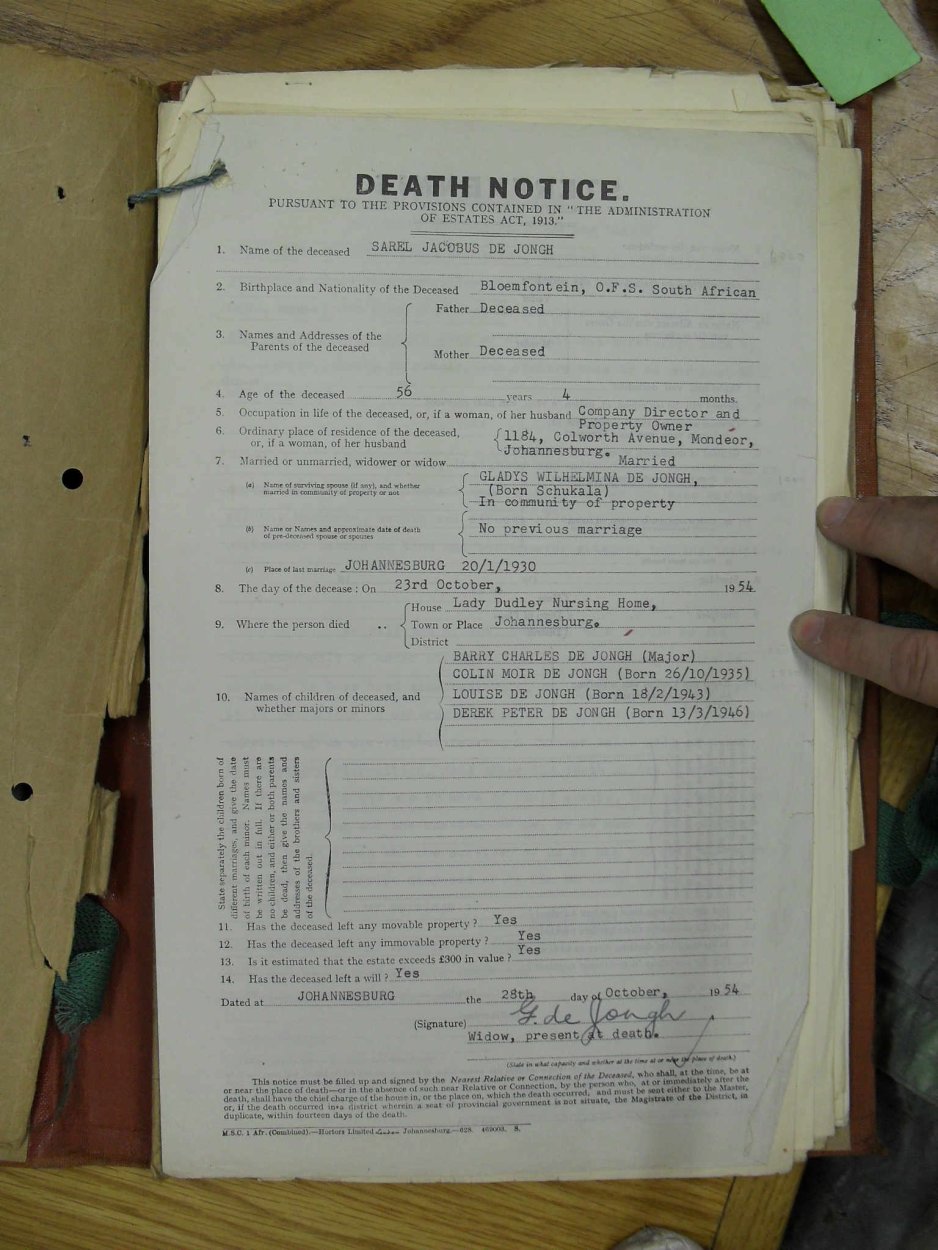 DEATH NOTICE.
PURSUANT TO THE PROVISIONS CONTAINED IN "THE ADMINISTRATION
OF ESTATES ACT, 1913."
1. Name of the deceased SAREL JACOBUS DE JONGH
2. Birthplace and Nationality of the Deceased Bloemfontein, O.F.S. South African
3. Names and Addresses of the Parents of the deceased
Father Deceased
Mother Deceased
4. Age of the deceased 56 years 4 months.
5. Occupation in life of the deceased, or, if a woman, of her husband Company Director and
Property Owner
6. Ordinary place of residence of the deceased, 1184, Colworth Avenue, Mondeor,
or, if a woman, of her husband Johannesburg.
7. Married or unmarried, widower or widow Married
(a) Name of surviving spouse (if any), and whether GLADYS WILHELMINA DE JONGH,
married in community of property or not (Born Schukala)
In community of property
(b) Name or Names and approximate date of death No previous marriage
of pre-deceased spouse or spouses
(c) Place of last marriage JOHANNESBURG 20/1/1930
8. The day of the decease : On 23rd October, 1954
9. Where the person died ..
House Lady Dudley Nursing Home,
Town or Place Johannesburg.
District
10. Names of children of deceased, and
whether majors or minors
BARRY CHARLES DE JONGH (Major)
COLIN MOIR DE JONGH (Born 26/10/1935)
LOUISE DE JONGH (Born 18/2/1943)
DEREK PETER DE JONGH (Born 13/3/1946)
State separately the children born of
different marriages, and give the date
of birth of each minor. Names must
be written out in full. If there are
no children, and either or both parents
be dead, then give the names and
addresses of the brothers and sisters
of the deceased.
11. Has the deceased left any movable property ? Yes
12. Has the deceased left any immovable property ? Yes
13. Is it estimated that the estate exceeds £300 in value ? Yes
14. Has the deceased left a will ? Yes
Dated at JOHANNESBURG the 28th day of October, 1954
(Signature) G. de Jongh
Widow, present at death.
(State in what capacity and whether at the time at or near the place of death.)
This notice must be filled up and signed by the Nearest Relative or Connection of the Deceased, who shall, at the time, be at
or near the place of death—or in the absence of such near Relative or Connection, by the person who, at or immediately after the
death, shall have the chief charge of the house in, or the place on, which the death occurred, and must be sent either to the Master,
or, if the death occurred in a district wherein a seat of provincial government is not situate, the Magistrate of the District, in
duplicate, within fourteen days of the death.
M.S.C. 1 Afr. (Combined).—Hortors Limited Johannesburg.—628. 469003. S.